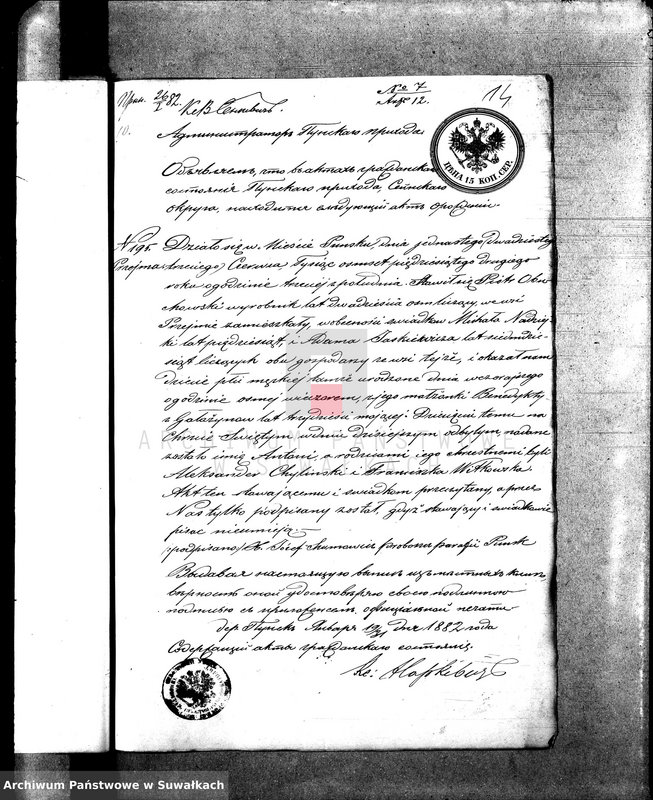 Прин. 26/I 82.
КсВ Сенкевичъ.
№ 7
Апр 12.
14
Администраторъ Пунскаго прихода
ЦѢНА 15 КОП. СЕР.
Объявляемъ, что въ актахъ гражданскаго
состоянія Пунскаго прихода, Сейнскаго
округа, находится слѣдующій актъ о рожденіи
N 195
Przejma
Działo się w Mieście Puńsku, dnia jedenastego/dwudziestego
trzeciego/ Czerwca tysiąc osmset pięćdziesiątego drugiego
roku o godzinie trzeciej z południa. Stawił się Piotr
chowski wyrobnik lat dwadzieścia ośm liczący, we wsi
Przejmie zamieszkały, w obecności świadków Michała
lat pięćdziesiąt, i Adama Jaskiewicza lat siedmdzie-
siąt liczących obu gospodarzy ze wsi tejże, i okazał nam
dziecie płci męzkiej urodzone dnia wczorajszego
o godzinie osmej wieczorem, z jego małżonki Benedykty
z Gałażynow lat trzydzieści mającej. Dziecięciu temu na
Chrzcie Świętym w dniu dzisiejszym odbytym nadane
zostało imie Antoni, a rodzicami jego chrzestnemi byli
Aleksander Chyliński i Franciszka Witkowska.
Akt ten stawającemu i świadkom przeczytany, a przez
Nas tylko podpisany został, gdyż stawający i świadkowie
pisać nieumieją.—
/podpisano/ X. Józef Proboszcz Parafii Puńsk
Выдавая настоящую выпись изъ метныхъ книгъ
вѣрность оной удостовѣряю своею подписью
съ приложеніемъ официальной печати
дер. Пунскъ Января 19/31 дня 1882 года
Содержащій акты гражданскаго состоянія,
Кс:
ARCHIWUM PAŃSTWOWE
W SUWAŁKACH
Archiwum Państwowe w Suwałkach